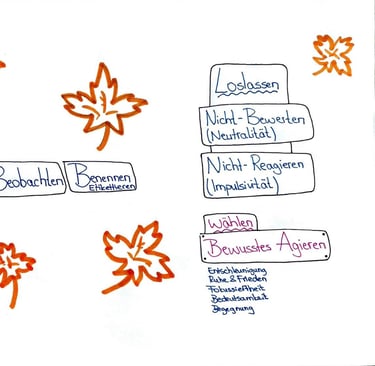 Beobachten
Benennen
Etikettieren
Loslassen
Nicht-Bewerten
(Neutralität)
Nicht-Reagieren
(Impulsivität)
Wählen
Bewusstes Agieren
Entschleunigung
Ruhe & Frieden
Fokussiertheit
Bedeutsamkeit
Begegnung